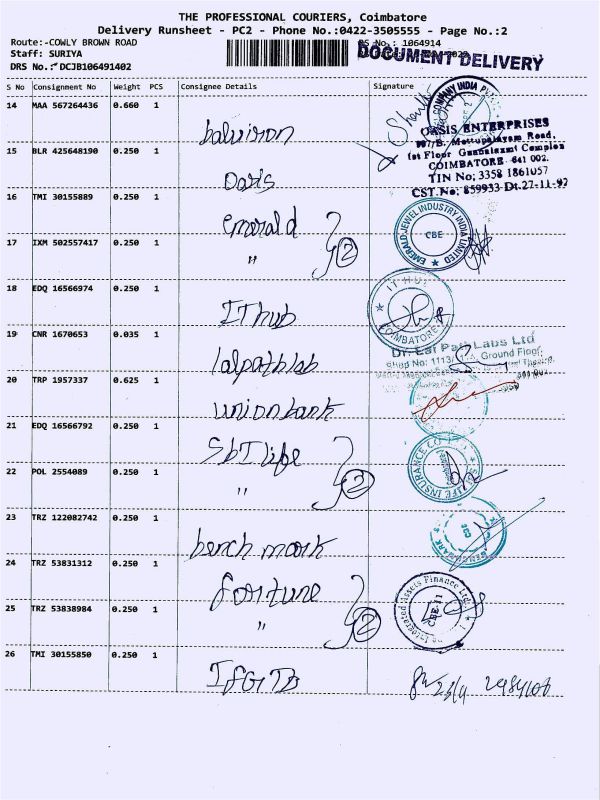 THE PROFESSIONAL COURIERS, Coimbatore
Delivery Runsheet - PC2 - Phone No.:0422-3505555 - Page No.:2
Route:-COWLY BROWN ROAD
DS No.: 1064914
Staff: SURIYA
DOCUMENT DELIVERY
DRS No.: DCJB106491402
S No Consignment No Weight PCS Consignee Details Signature
14 MAA 567264436 0.660 1
COMPANY INDIA
OASIS ENTERPRISES
Mettupalayam Road,
1st Floor Gunalaxmi Complex
COIMBATORE 641 002.
TIN No; 3358 1861057
CST.No; 859933 Dt.27-11-92
15 BLR 425648190 0.250 1
Oasis
16 TMI 30155889 0.250 1
Emerald
EMERALD JEWEL INDUSTRY INDIA LIMITED
CBE
17 IXM 502557417 0.250 1
" 2
18 EDQ 16566974 0.250 1
IThub
IT HUB
COIMBATORE
19 CNR 1670653 0.035 1
lalpathlab
Dr. Lal Path Labs Ltd
Shop No: 1113 Ground Floor,
20 TRP 1957337 0.625 1
union bank
21 EDQ 16566792 0.250 1
SbI life
LIFE INSURANCE CO
22 POL 2554089 0.250 1
" 2
23 TRZ 122082742 0.250 1
bench mark
BENCHMARK
24 TRZ 53831312 0.250 1
fortune
Integrated Assets Finance Ltd.
CBE-11
25 TRZ 53838984 0.250 1
" 2
26 TMI 30155850 0.250 1
IFGTB